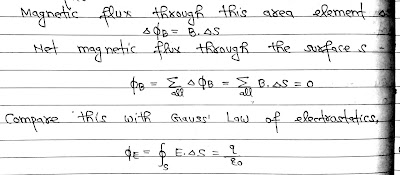 Magnetic flux through this area element
ΔϕB = B.ΔS
Net magnetic flux through the surface s
ϕB = Σall ΔϕB = Σall B.ΔS = 0
Compare this with Gauss' Law of electrostatics,
ϕE = ∮S E.ΔS = q/ε0